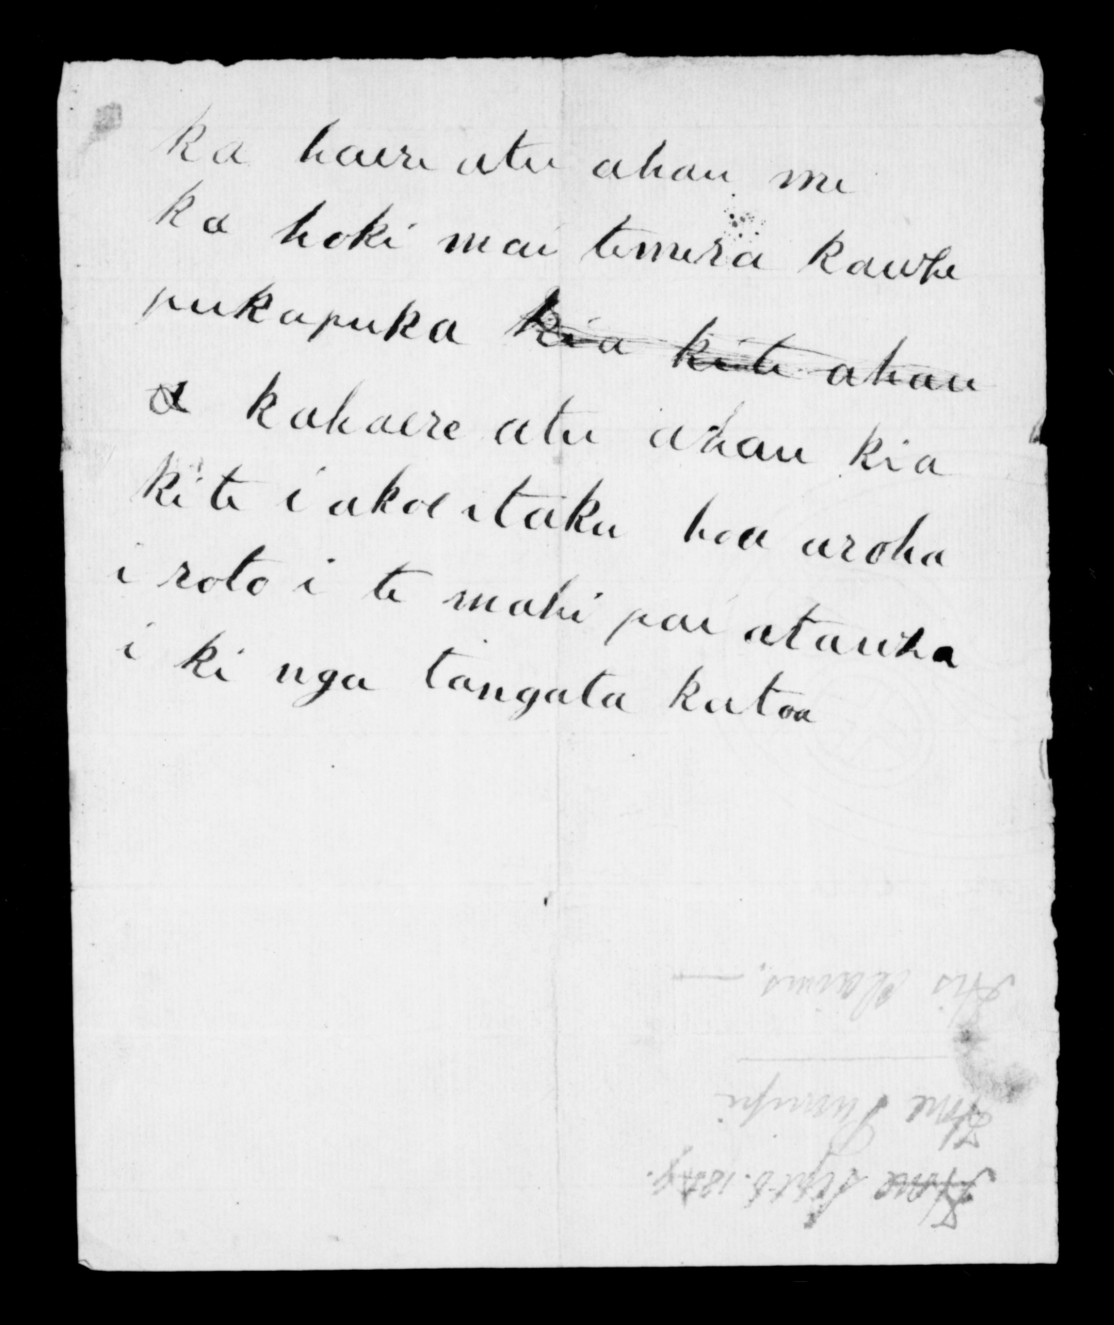 ka haere atu ahau me
ka hoki mai temera kawhe
pukapuka kia kite ahau
kahaere atu ahau kia
kite i akoe itaku hoa aroha
i roto i te mahi pai atauha
i ki nga tangata katoa
His Claims. —
Hone
Hone Sept 6. 18